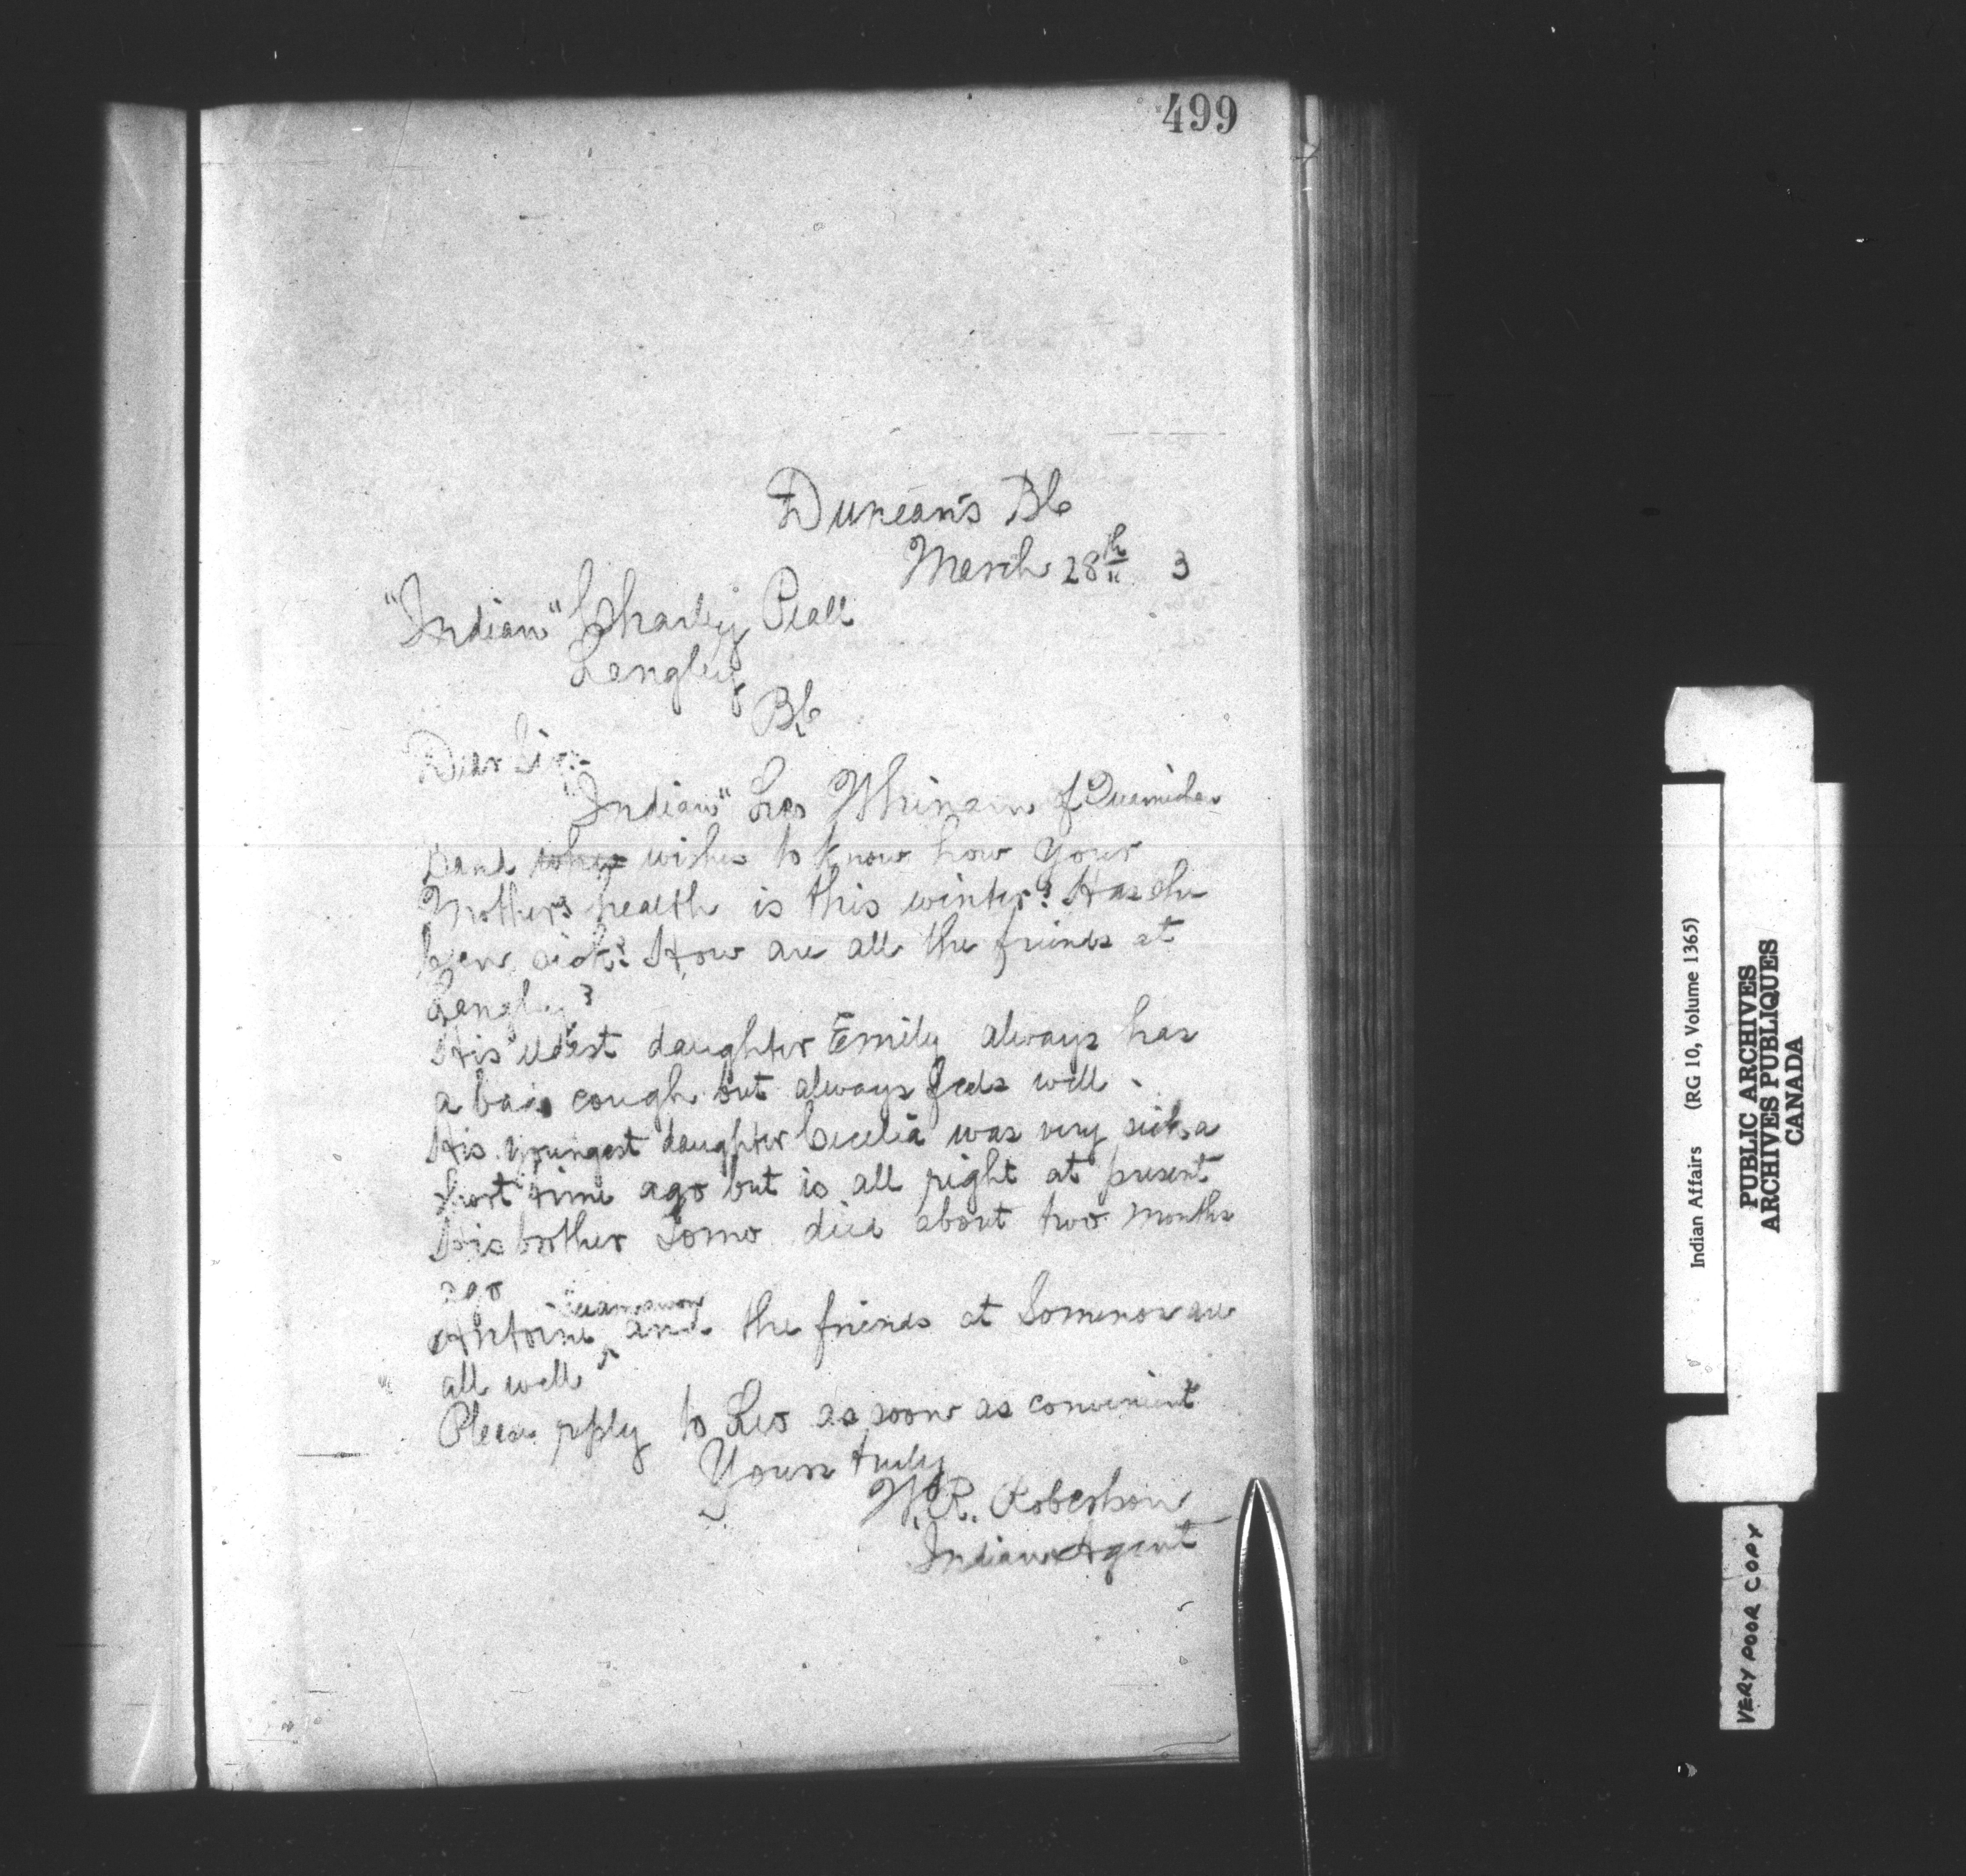 499
Duncan's BC
March 28th 3
"Indian" Charley Peall
Langley
BC
Dear Sir:-
"Indian" Leo Whinam of Quamichan
Band wishes to know how your
Mothers health is this winter? Has she
been sick? How are all the friends at
Langley?
His eldest daughter Emily always has
a bad cough but always feels well.
His youngest daughter Cecelia was very sick a
short time ago but is all right at present
His brother Tomo died about two months
ago
Antoine and the friends at Somenos are
all well
Please reply to Leo as soon as convenient
Yours truly
W.R. Robertson
Indian Agent
Indian Affairs (RG 10, Volume 1365)
PUBLIC ARCHIVES
ARCHIVES PUBLIQUES
CANADA
VERY POOR COPY